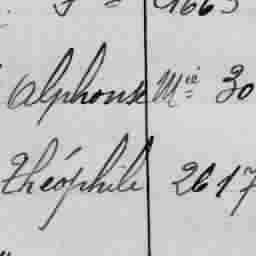 1663
Alphonse Mié 30
Théophile 2617